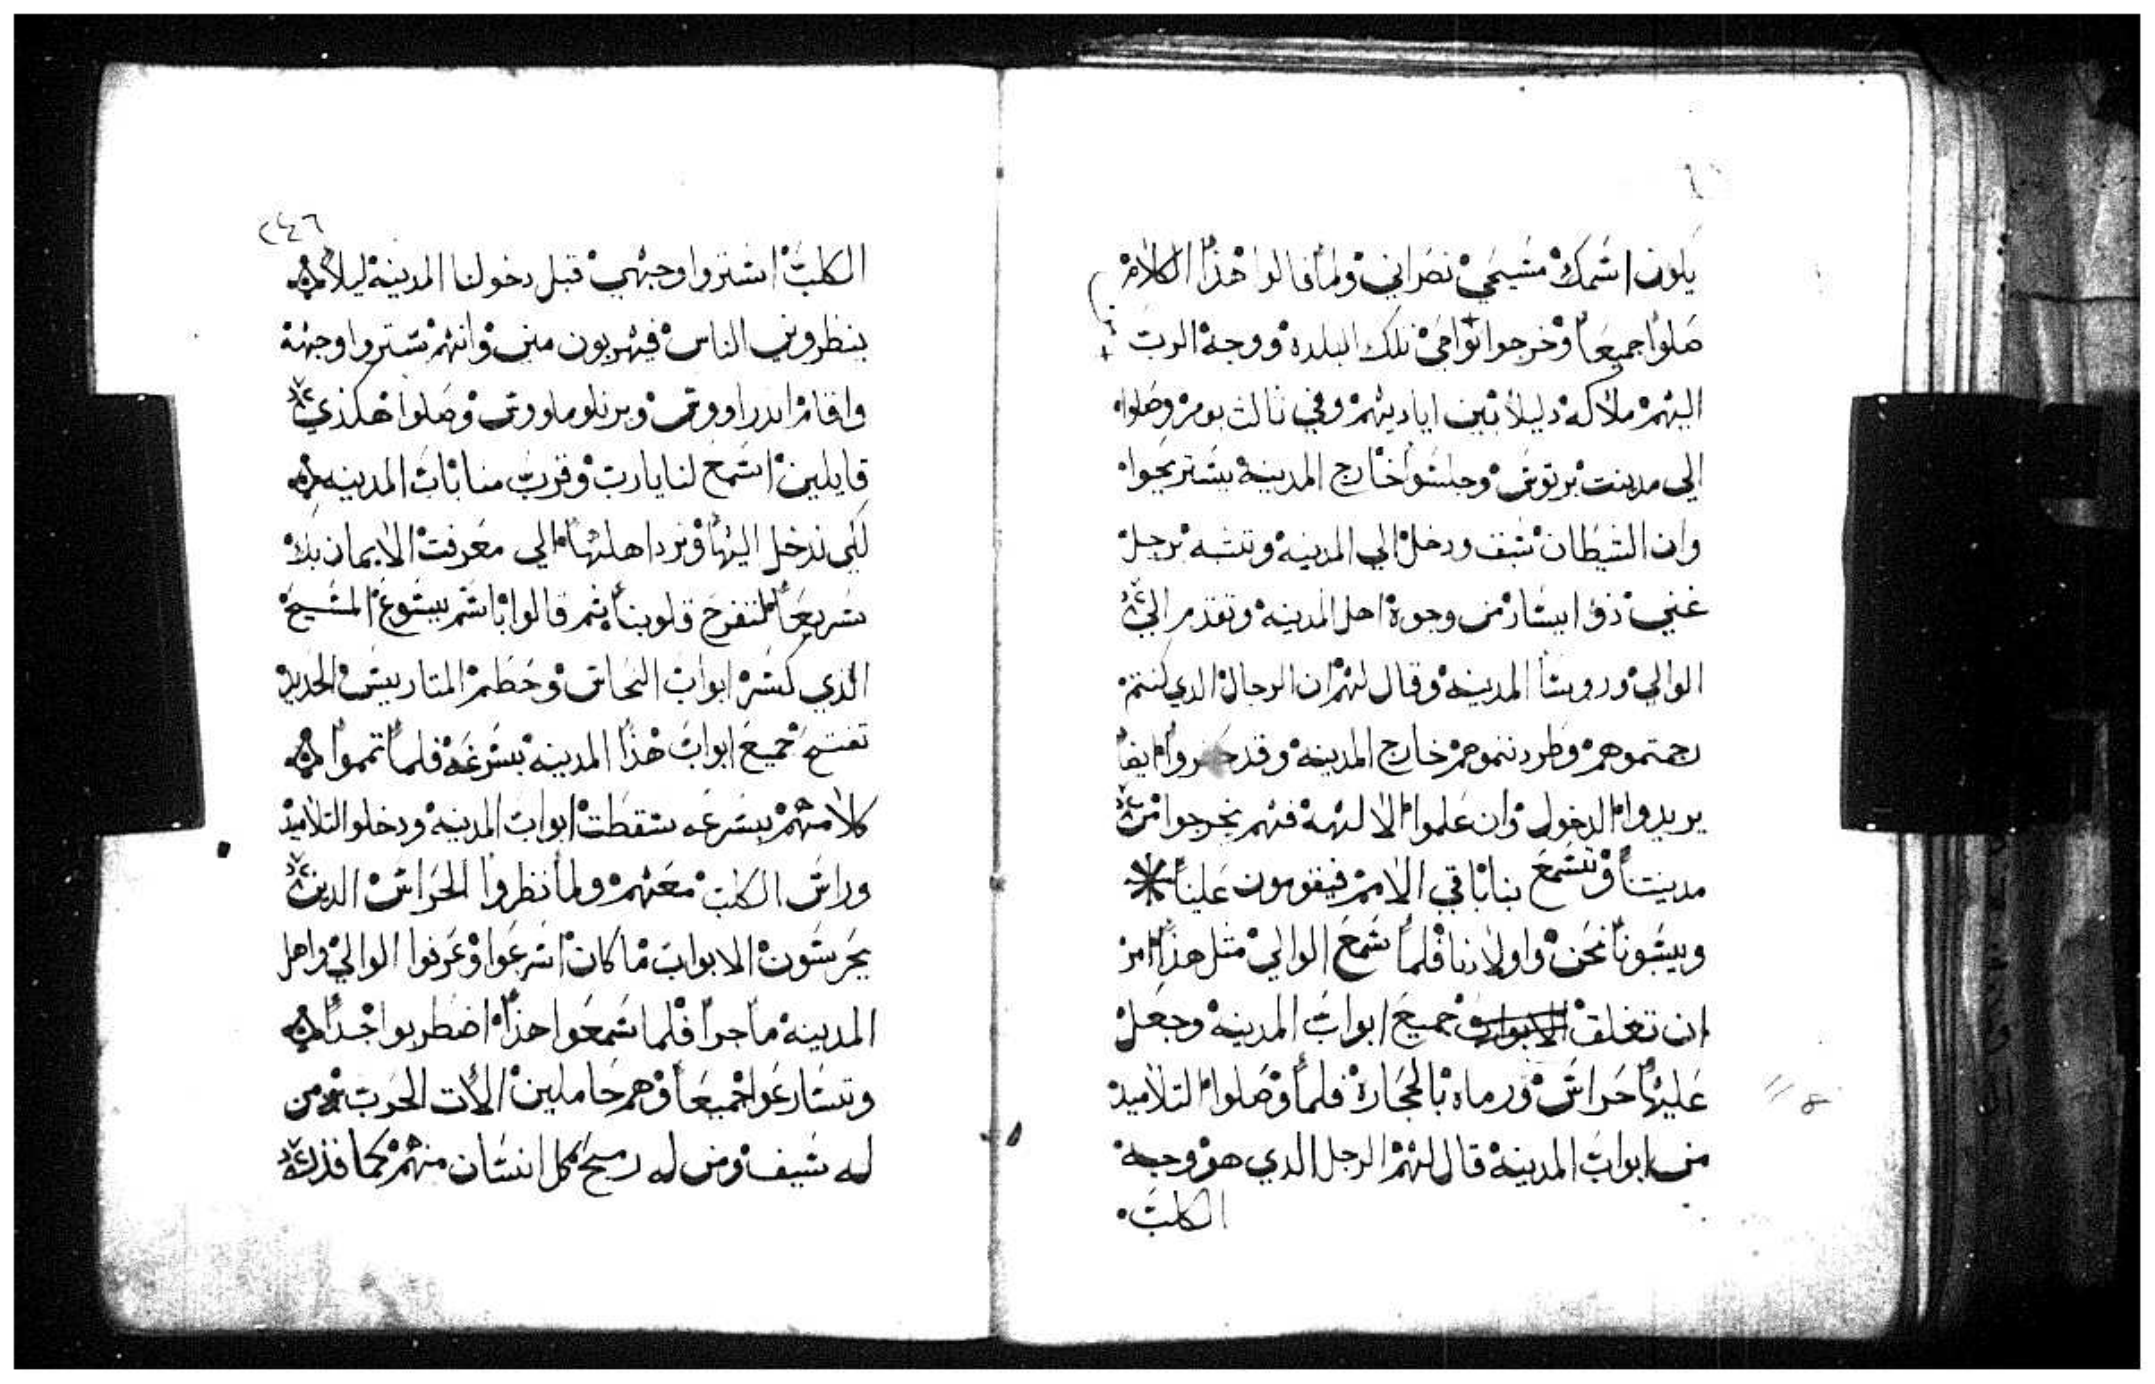 يكون اسمك مسيحي نصراني ولما قالوا هذا الكلام
صلوا جميعا وخرجوا توامي تلك البلده ووجه الرب
اليهم ملاكه دليلا بين اياديهم وفي ثالث يوم وصلوا
الي مدينت برتوس وجلسوا خارج المدينة يستريحوا
وان الشيطان سبق ودخل الي المدينه وتشبه برجل
غني ذو ايسار من وجوة اهل المدينه وتقدم الي
الوالي ورووسا المدينه وقال لهم ان الرجال الدي كنتم
رجمتموهم وطردتموهم خارج المدينه وقد حضروا ايضا
يريدوا الدخول وان علموا الالهه فهم يخرجوا من
مدينتنا وتسمع بنا باقي الامم فيقومون علينا
ويسبونا نحن واولادنا فلما سمع الوالي مثل هذا امر
ان تغلق الابواب جميع ابواب المدينة وجعل
عليها حراس ورماه بالحجارة فلما وصلوا التلاميد
من ابواب المدينة قال لهم الرجل الدي هو وجه
الكلب
٢٤٦
الكلب استروا وجهي قبل دخولنا المدينة ليلا
ينظروني الناس فيهربون مني وانهم ستروا وجهه
واقام اندراووس وبرتلوماووس وصلوا هكذي
قايلين اسمع لنا يارب وقرب منا باب المدينه
لكي ندخل اليها ونرد اهلها الي معرفت الايمان بك
سريعا لتفرح قلوبنا ثم قالوا باسم يسوع المسيح
الذي كسر ابواب النحاس وحطم المتاريس الحديد
تفتح جميع ابواب هذا المدينه بسرعه فلما تمموا
كلامهم بسرعه سقطت ابواب المدينه ودخلو التلاميذ
وراس الكلب معهم ولما نظروا الحراس الدين
يحرسون الابواب ما كان اسرعوا وعرفوا الوالي واهل
المدينه ما جرا فلما سمعوا هذا اضطربوا جدا
وتسارعوا جميعا وهم حاملين الات الحرب من
له سيف ومن له رمح كل انسان منهم كما قدرته